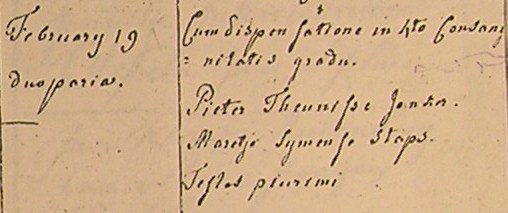 February 19
duo paria.
Cum dispensatione in 4to Consang
= nitatis gradu.
Pieter Theunisse Jonker.
Maretje Symense Staps.
Testes plurimi